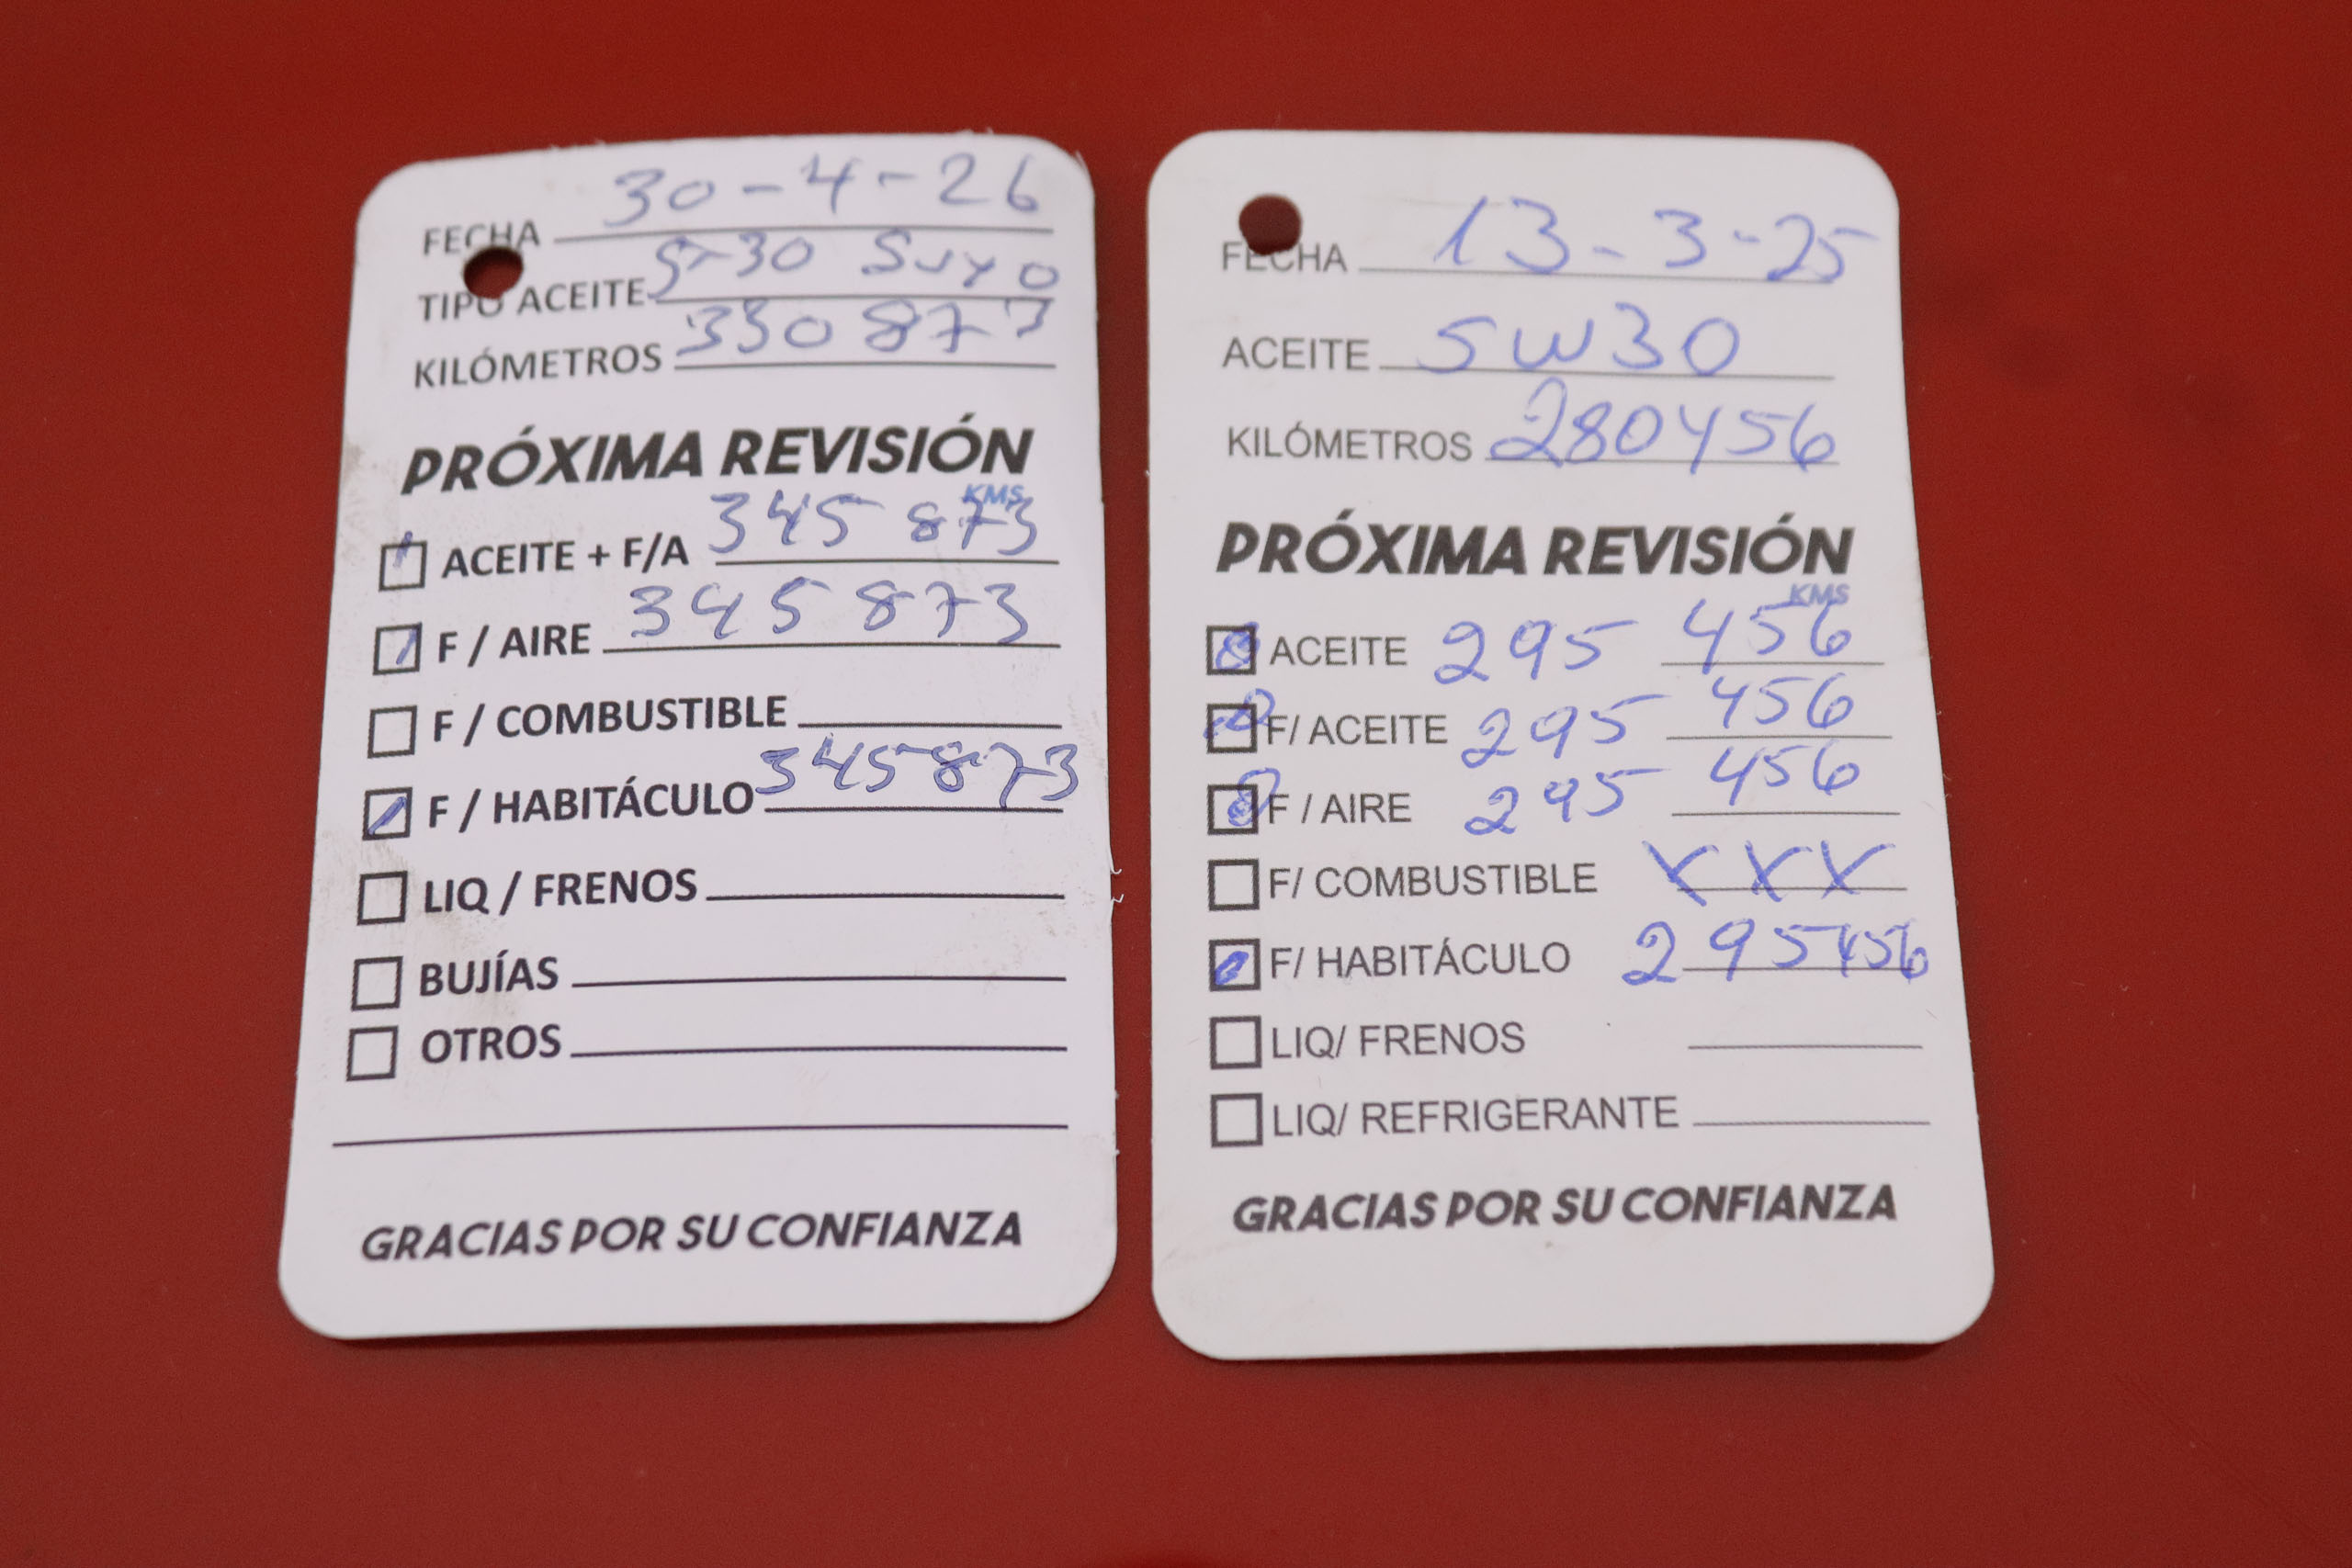 FECHA 30-4-26
TIPO ACEITE 5-30 SUYO
KILÓMETROS 330 873
PRÓXIMA REVISIÓN
KMS
ACEITE + F/A 345 873
F / AIRE 345 873
F / COMBUSTIBLE
F / HABITÁCULO 345873
LIQ / FRENOS
BUJÍAS
OTROS
GRACIAS POR SU CONFIANZA
FECHA 13-3-25
ACEITE 5W30
KILÓMETROS 280456
PRÓXIMA REVISIÓN
KMS
ACEITE 295 456
F/ ACEITE 295 456
F / AIRE 295 456
F/ COMBUSTIBLE XXX
F/ HABITÁCULO 295456
LIQ/ FRENOS
LIQ/ REFRIGERANTE
GRACIAS POR SU CONFIANZA